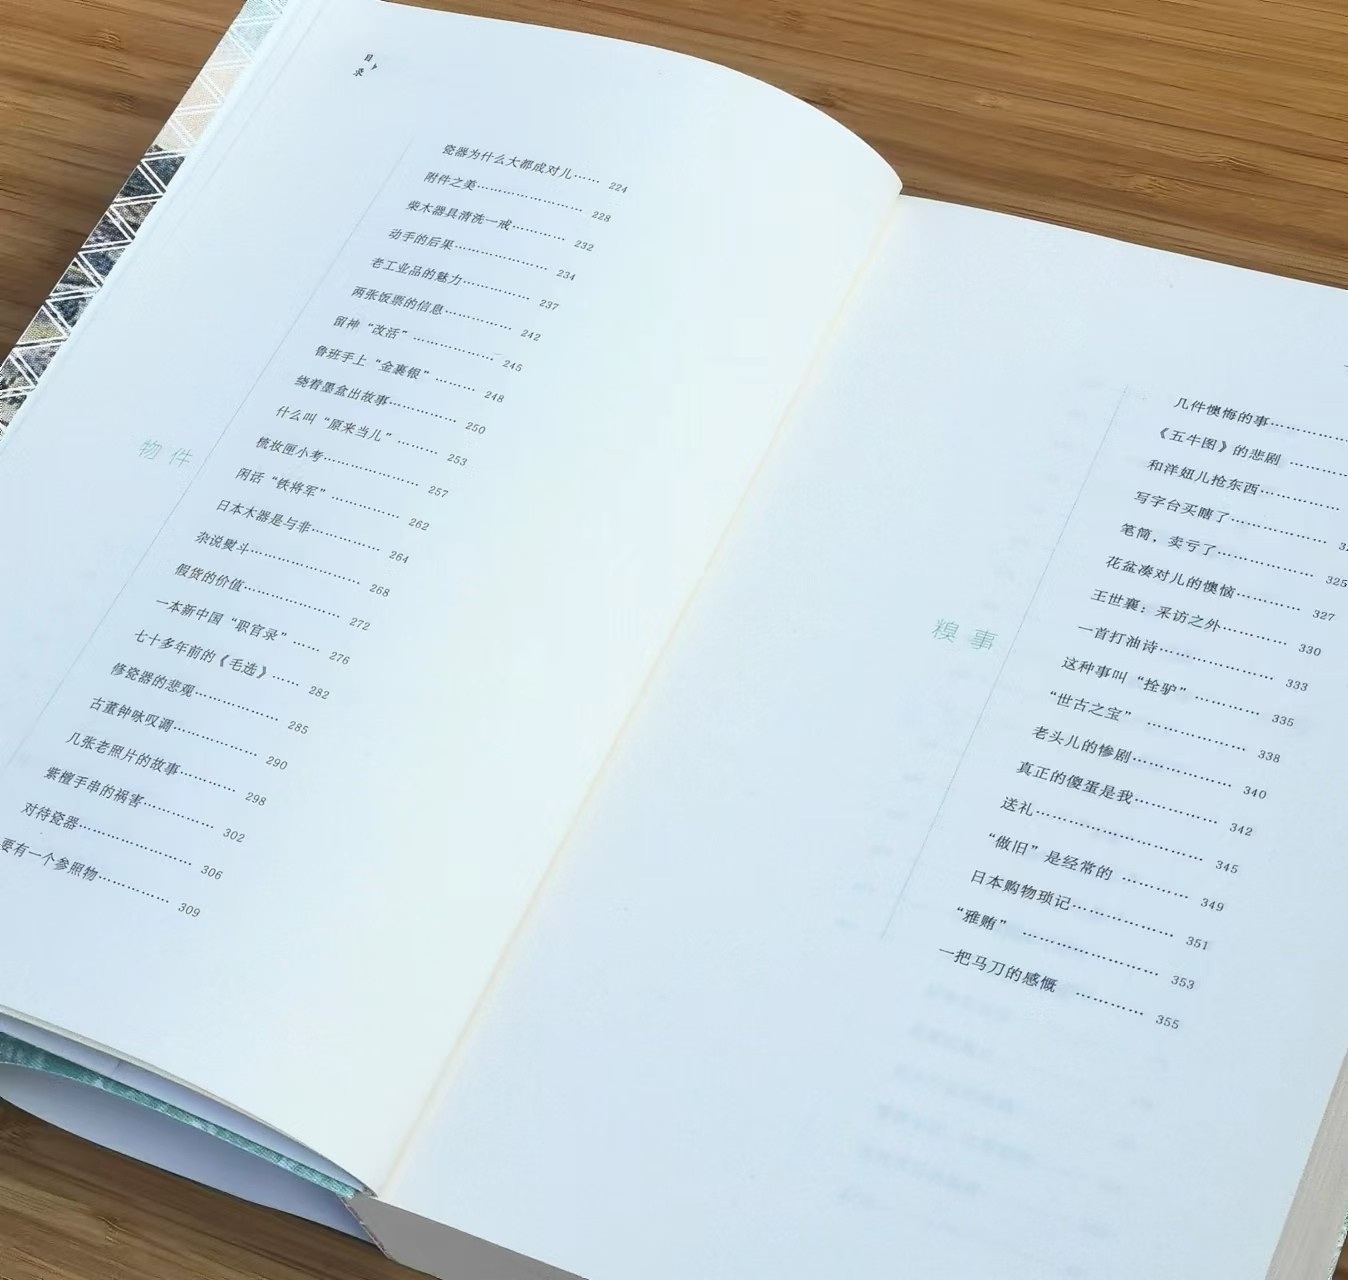 目录
瓷器为什么大都成对儿…… 224
附件之美……………… 228
柴木器具清洗一戒……… 232
动手的后果……………… 234
老工业品的魅力………… 237
两张饭票的信息………… 242
留神“改活”…………… 245
鲁班手上“金裹银”……… 248
绕着墨盒出故事………… 250
什么叫“原来当儿”…… 253
梳妆匣小考……………… 257
闲话“铁将军”………… 262
日本木器是与非………… 264
杂说熨斗……………… 268
假货的价值……………… 272
一本新中国“职官录”…… 276
七十多年前的《毛选》…… 282
修瓷器的悲观…………… 285
古董钟咏叹调…………… 290
几张老照片的故事……… 298
紫檀手串的祸害………… 302
对待瓷器……………… 306
要有一个参照物………… 309
物件
几件懊悔的事…………
《五牛图》的悲剧…………
和洋妞儿抢东西…………
写字台买瞎了……………
笔筒，卖亏了…………… 325
花盆凑对儿的懊恼……… 327
王世襄：采访之外……… 330
一首打油诗……………… 333
这种事叫“拴驴”……… 335
“世古之宝”…………… 338
老头儿的惨剧…………… 340
真正的傻蛋是我………… 342
送礼…………………… 345
“做旧”是经常的………… 349
日本购物琐记…………… 351
“雅贿”………………… 353
一把马刀的感慨………… 355
糗事